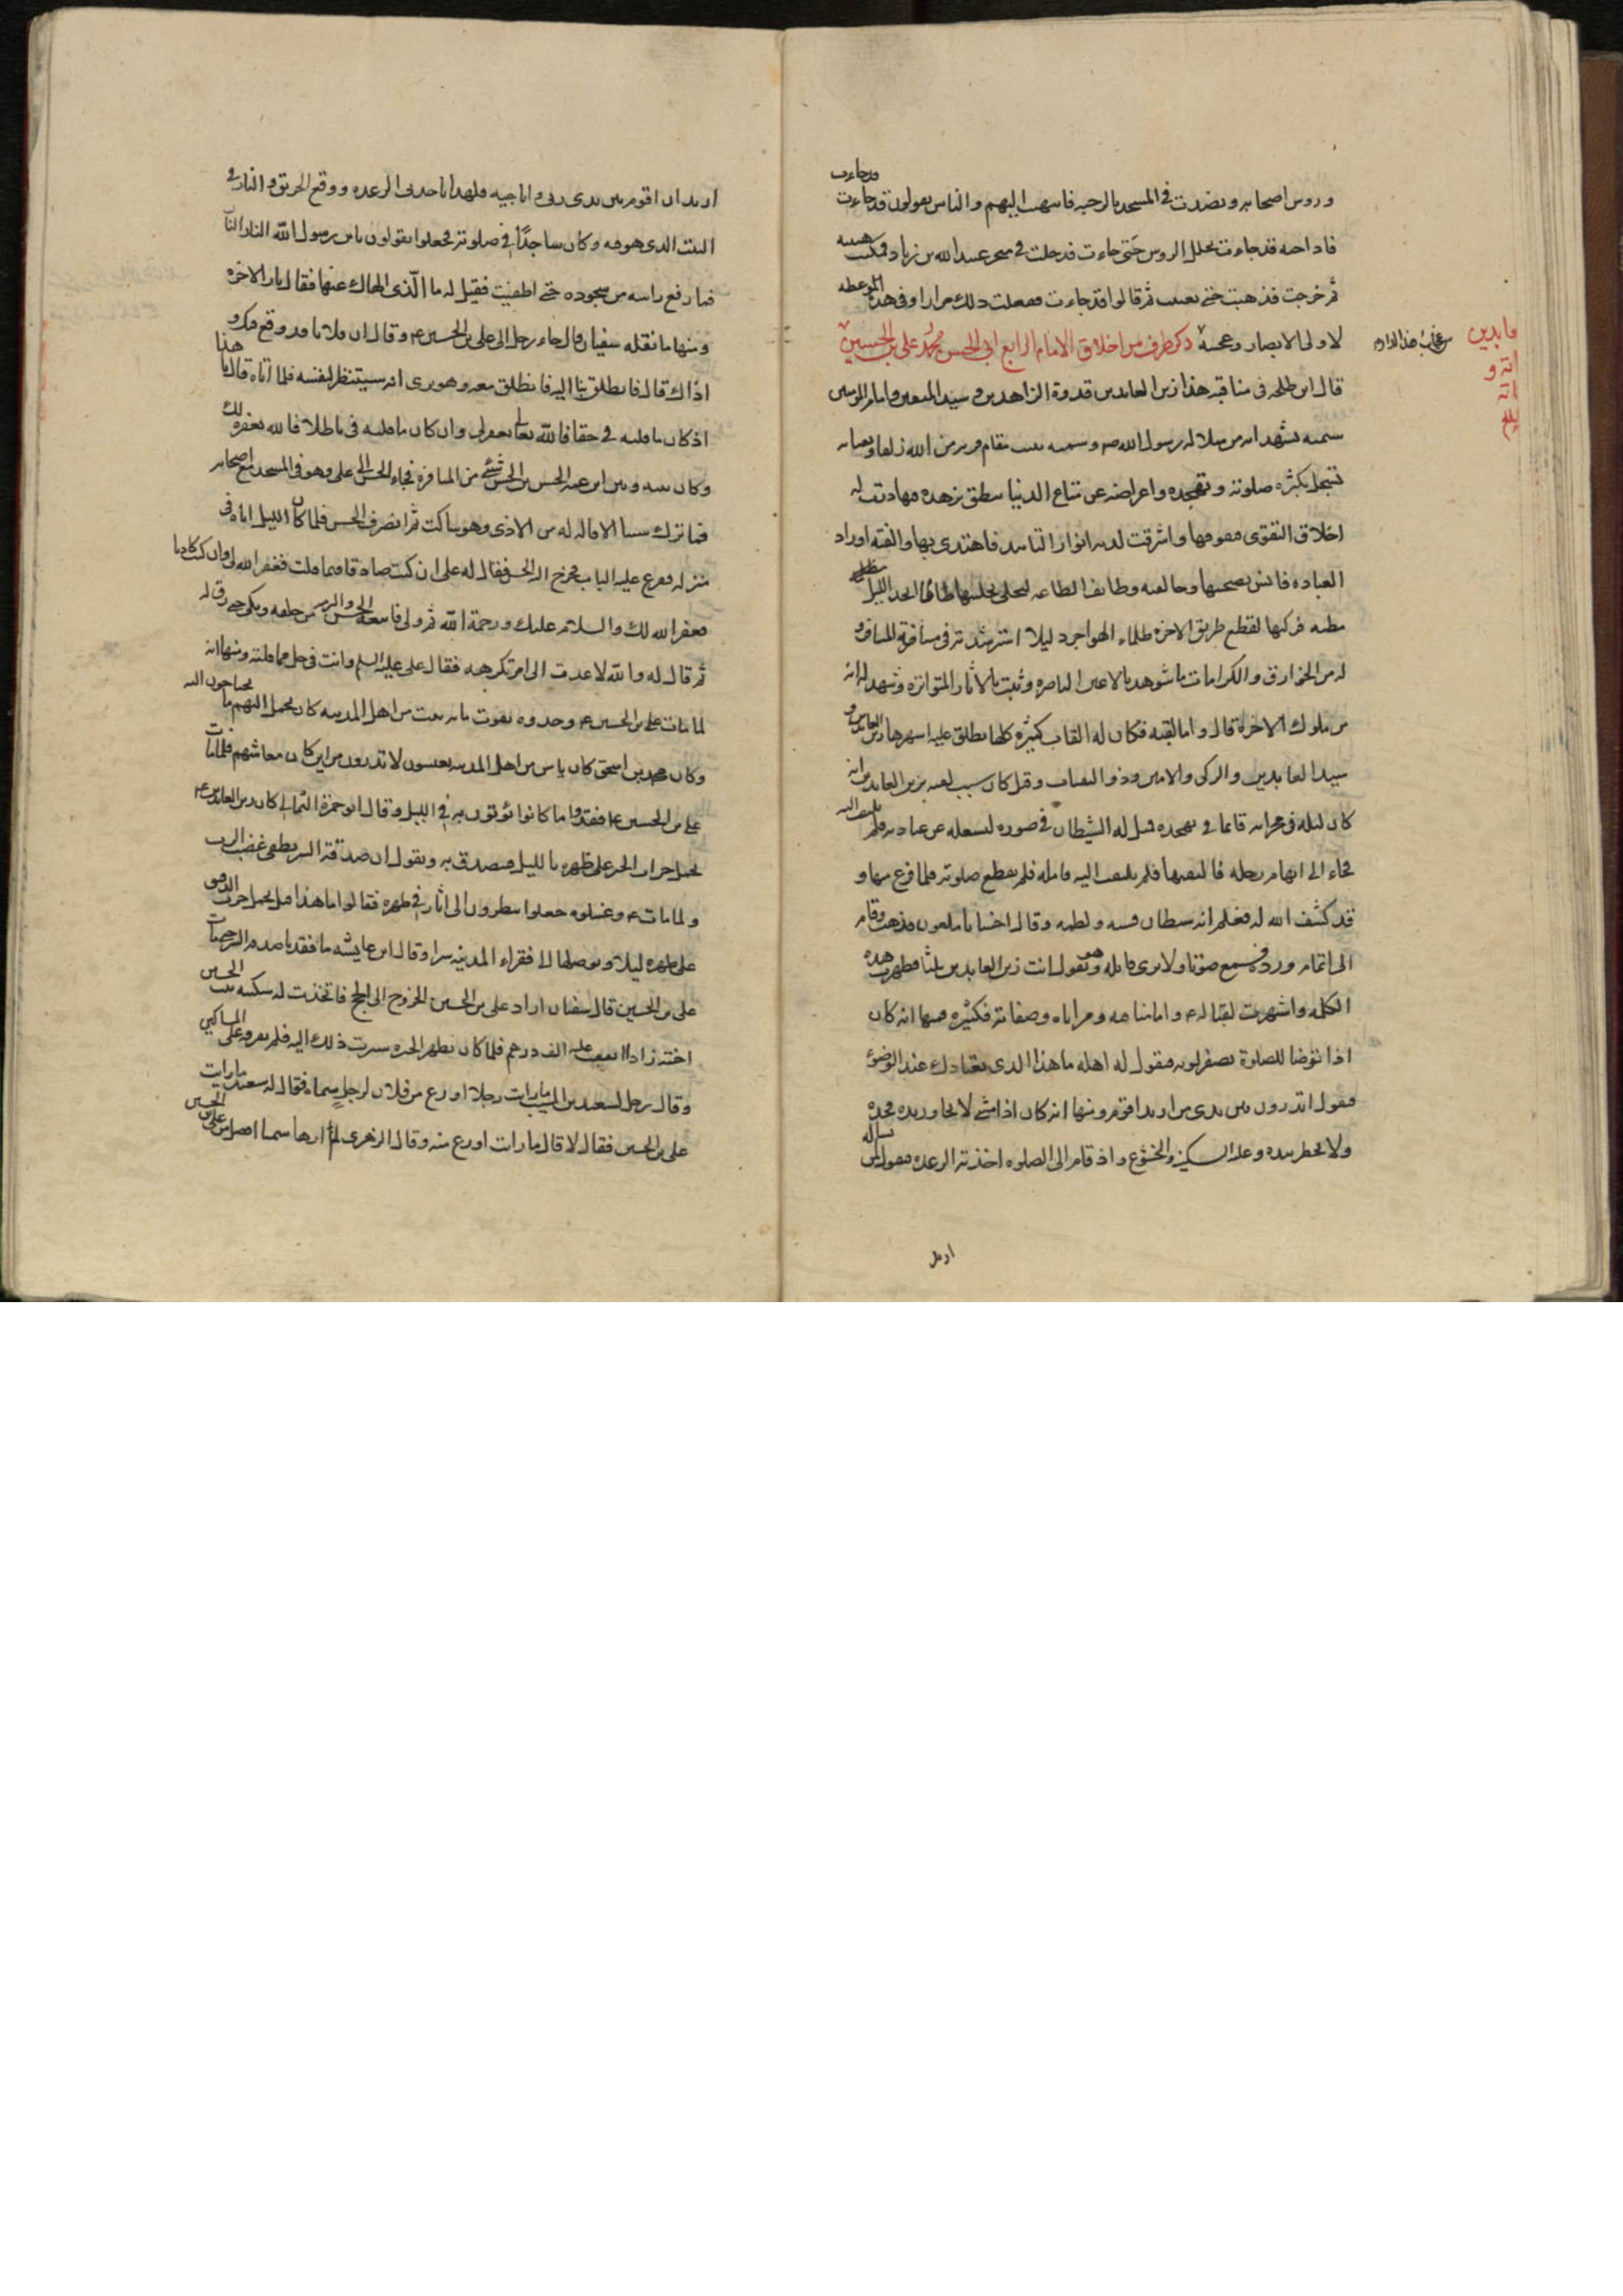 وروس اصحابه ونضدت في المسجد بالرحبه فانتهيت اليهم والناس يقولون قد جاءت قد جاءت
فاذا حيه قد جاءت تخلل الروس حتى جاءت فدخلت في منخر عبيد الله بن زياد فمكثت هنيهه
ثم خرجت فذهبت حتى تغيبت ثم قالوا قد جاءت ففعلت ذلك مرارا وفي هذه الموعظه
لاولى الابصار وعجيبة من عجايب هذا الدار ذكر طرف من اخلاق الامام الرابع ابي الحسن محمد علي بن الحسين
قال ابن طلحه في مناقبه هذا زين العابدين قدوة الزاهدين وسيد المتقين وامام المومنين
سمته تشهد انه من سلالة رسول الله ص وسمته يثبت مقام قربه من الله زلفا وثفناته
تسجل بكثرة صلوته وتهجده واعراضه عن متاع الدنيا ينطق بزهده فيها درت له
اخلاق التقوى فتفوقها واشرقت لديه انوار التاييد فاهتدى بها والفته اوراد
العباده فانس بصحبتها وحالفته وظائف الطاعه فتحلى بحليتها طالما اتخذ الليل
مطيه فركبها لقطع طريق الاخره وظماء الهواجر دليلا استرشد به في مسافة المسافرة
له من الخوارق والكرامات ما شوهد بالاعين الباصره وثبت بالاثار المتواتره وشهد له انه
من ملوك الاخرة قال واما لقبه فكان له القاب كثيره كلها تطلق عليه اشهرها زين العابدين و
سيد العابدين والزكى والامين وذو الثفنات وقيل كان سبب لقبه بزين العابدين انه
كان ليله في محرابه قائما في تهجده فمثل له الشيطان في صوره ليشغله عن عبادته فلم يلتفت اليه
فجاء الى ابهام رجله فالتقمها فلم يلتفت اليه فامله فلم يقطع صلوته فلما فرغ منها و
قد كشف الله له فعلم انه شيطان فسبه ولطمه وقال اخسا يا ملعون فذهب وقام
الى اتمام ورده فسمع صوتا ولا يرى قايله وهو يقول انت زين العابدين ثلثا فظهرت هذه
الكلمه واشتهرت لقبا له ع واما مناقبه ومزاياه وصفاته فكثيره فمنها انه كان
اذا توضا للصلوة يصفر لونه فيقول له اهله ما هذا الذى يعتادك عند الوضوء
فيقول اتدرون بين يدى من اريد اقوم ومنها انه كان اذا مشى لا يجاوز يده فخذه
ولا يخطر بيده وعليه السكينه والخشوع واذ قام الى الصلوه اخذته الرعده فيقول لمن يساله
اريد
اريد ان اقوم بين يدى ربى واناجيه فلهذا تاخذنى الرعده ووقع الحريق والنار في
البيت الذى هو فيه وكان ساجدا في صلوته فجعلوا يقولون يابن رسول الله النار النار
فما رفع راسه من سجوده حتى اطفيت فقيل له ما الذى الهاك عنها فقال نار الاخره
ومنها ما نقله سفيان قال جاء رجل الى علي بن الحسين ع وقال ان فلانا قد وقع فيك و
اذاك قال فانطلق بنا اليه فانطلق معه وهو يرى انه سينتظر لنفسه فلما اتاه قال يا هذا
اذ كان ما قلته في حقا فالله تعالى يغفر لى وان كان ما قلته في باطلا فالله يغفره لك
وكان بينه وبين ابن عمه الحسن بن الحسن شيء من المنافره فجاء الحسن الى علي وهو في المسجد مع اصحابه
فما ترك شيئا الا قاله له من الاذى وهو ساكت ثم انصرف الحسن فلما كان الليل اتاه في
منزله فقرع عليه الباب فخرج اليه الحسن فقال له على ان كنت صادقا فيما قلت فغفر الله لى وان كنت كاذبا
فغفر الله لك والسلام عليك ورحمة الله ثم ولى فاتبعه الحسن والتزمه من خلفه وبكى حتى رق له
ثم قال له والله لا عدت الى امر تكرهه فقال على عليه السلم وانت في حل مما قلته ومنها انه
لما مات علي بن الحسين ع وجدوه يقوت مايه بيت من اهل المدينه كان يحمل اليهم ما يحتاجون اليه
وكان محمد بن اسحق كان ياس من اهل المدينه يعيشون لا يدرون من اين كان معاشهم فلما مات
علي بن الحسين ع فقدوا ما كانوا يوتون به في الليل وقال ابو حمزة الثمالى كان زين العابدين ع
يحمل جراب الخبز على ظهره بالليل فيتصدق به ويقول ان صدقة السر تطفى غضب الرب
ولما مات ع وغسلوه جعلوا ينظرون الى اثار في ظهره فقالوا ما هذا قيل يحمل جرب الدقيق
على ظهره ليلا ويوصلها الى فقراء المدينه سرا وقال ابن عايشه ما فقدنا صدقه السر حتى مات
علي بن الحسين قال سفيان اراد علي بن الحسين الخروج الى الحج فاتخذت له سكينه بنت الحسين
اخته زادا انفقت عليه الف درهم فلما كان بظهر الحره سيرت ذلك اليه فلم يفرقه على المساكين
وقال رجل لسعيد بن المسيب ما رايت رجلا اورع من فلان لرجل سماه فقال له سعيد ما رايت
علي بن الحسين فقال لا قال ما رايت اورع منه وقال الزهرى لم ار هاشميا افضل من علي بن الحسين